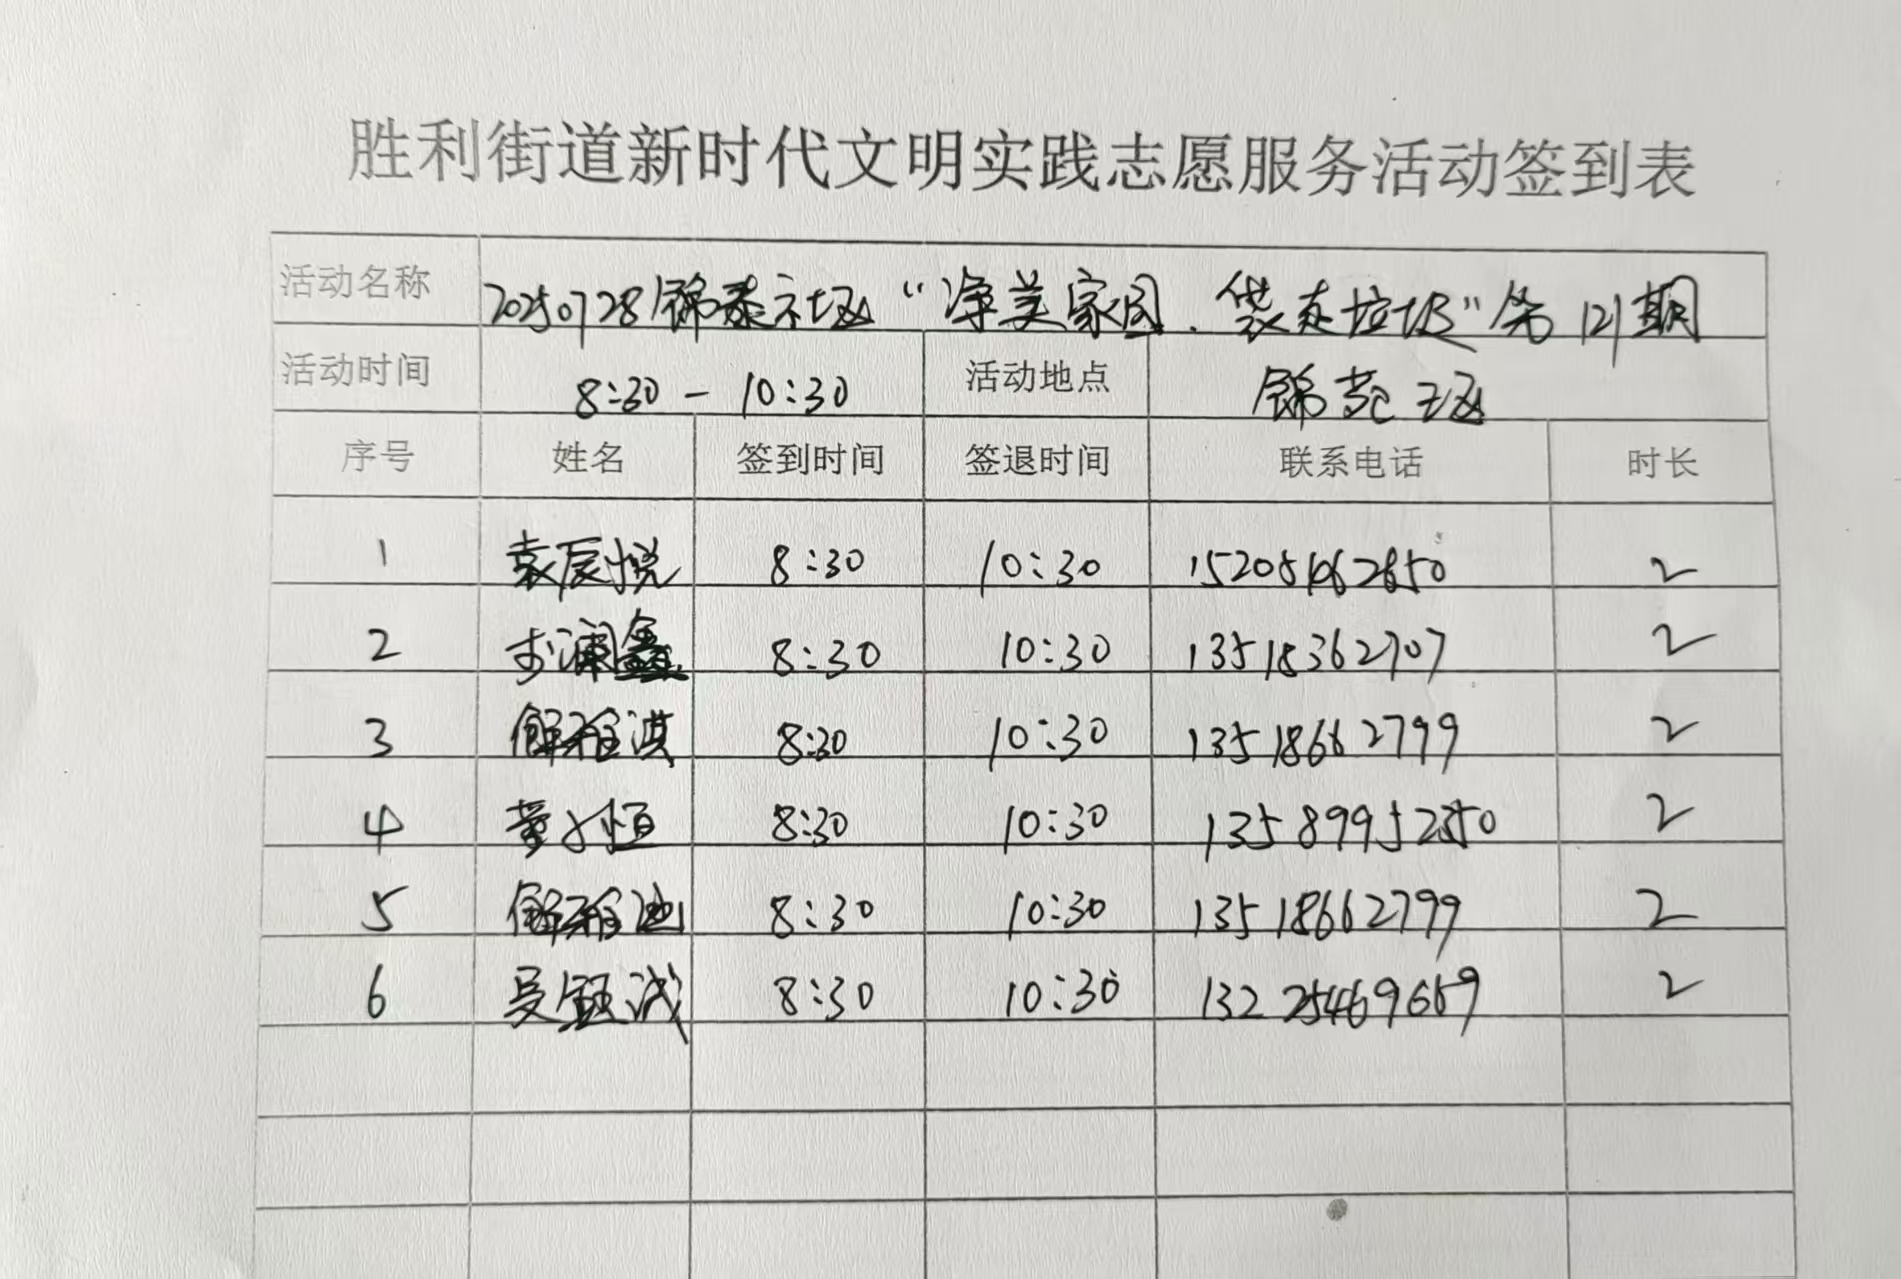 胜利街道新时代文明实践志愿服务活动签到表
活动名称 20250728锦泰社区“净美家园、袋走垃圾”第121期
活动时间 8:30 - 10:30 活动地点 锦苑一区
序号 姓名 签到时间 签退时间 联系电话 时长
1 袁辰悦 8:30 10:30 2
2 澜鑫 8:30 10:30 13518362707 2
3 解雅淇 8:30 10:30 13518662799 2
4 董子恒 8:30 10:30 2
5 解雅迪 8:30 10:30 13518662799 2
6 吴钰诚 8:30 10:30 2